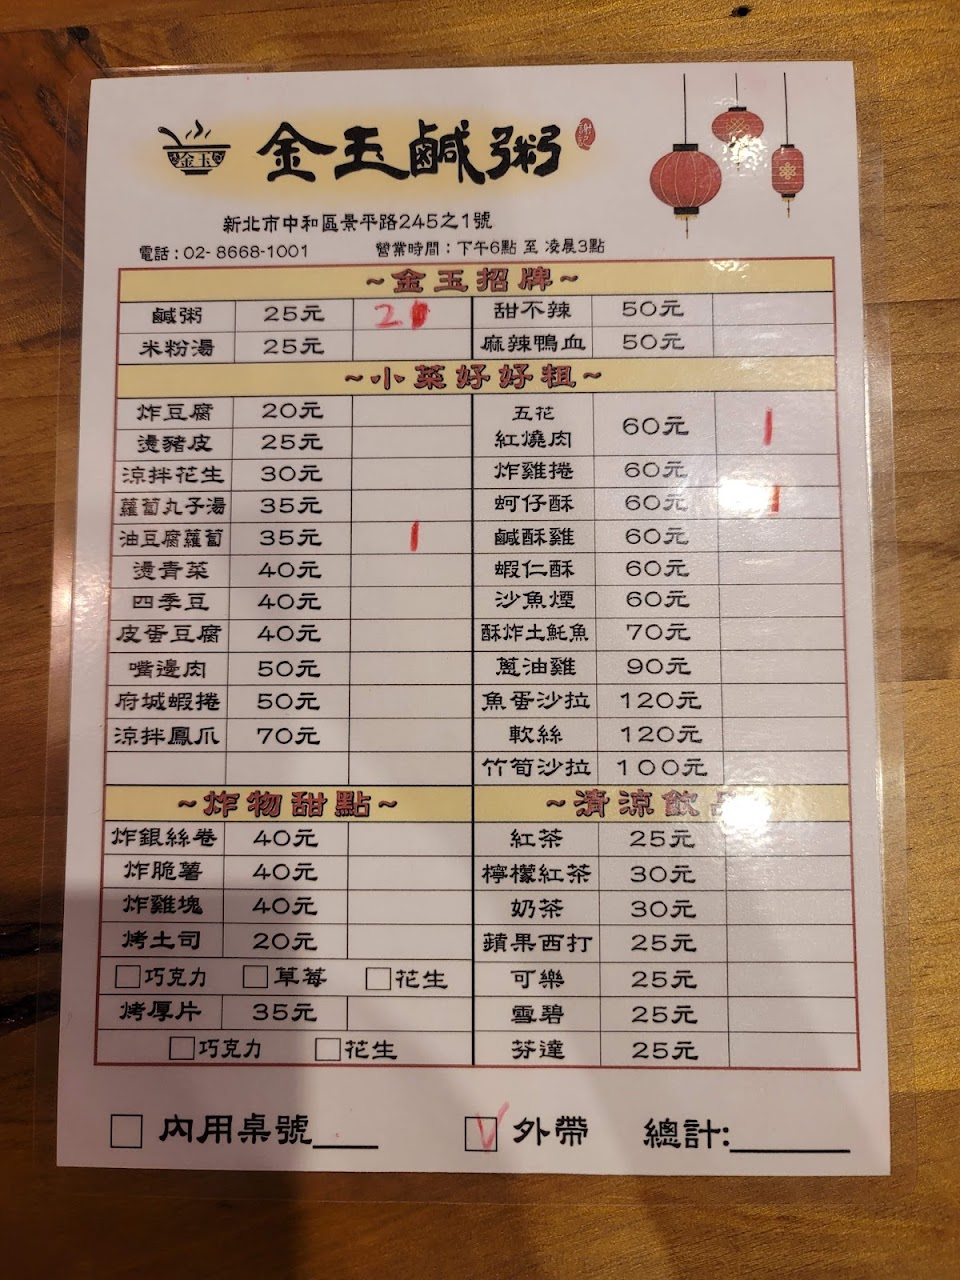 金玉
金玉鹹粥
謝記
新北市中和區景平路245之1號
電話：02- 8668-1001 營業時間：下午6點 至 凌晨3點
~金玉招牌~
鹹粥 25元 2 甜不辣 50元
米粉湯 25元 麻辣鴨血 50元
~小菜好好粗~
炸豆腐 20元 五花紅燒肉 60元 1
燙豬皮 25元
涼拌花生 30元 炸雞捲 60元
蘿蔔丸子湯 35元 蚵仔酥 60元 1
油豆腐蘿蔔 35元 1 鹹酥雞 60元
燙青菜 40元 蝦仁酥 60元
四季豆 40元 沙魚煙 60元
皮蛋豆腐 40元 酥炸土魠魚 70元
嘴邊肉 50元 蔥油雞 90元
府城蝦捲 50元 魚蛋沙拉 120元
涼拌鳳爪 70元 軟絲 120元
竹筍沙拉 100元
~炸物甜點~ ~清涼飲
炸銀絲卷 40元 紅茶 25元
炸脆薯 40元 檸檬紅茶 30元
炸雞塊 40元 奶茶 30元
烤土司 20元 蘋果西打 25元
□巧克力 □草莓 □花生 可樂 25元
烤厚片 35元 雪碧 25元
□巧克力 □花生 芬達 25元
□內用桌號____ ☑外帶 總計:________